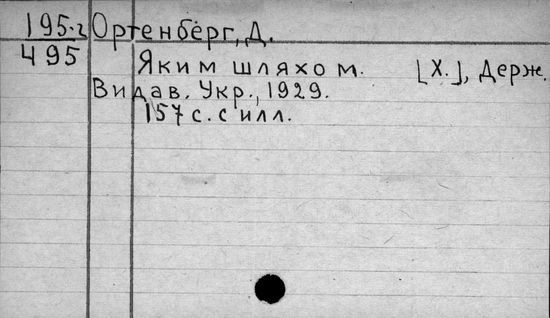 195.2 Ортенберг, Д.
495
Яким шляхом. [Х.], Держ.
Видав. Укр., 1929.
157 с. с илл.